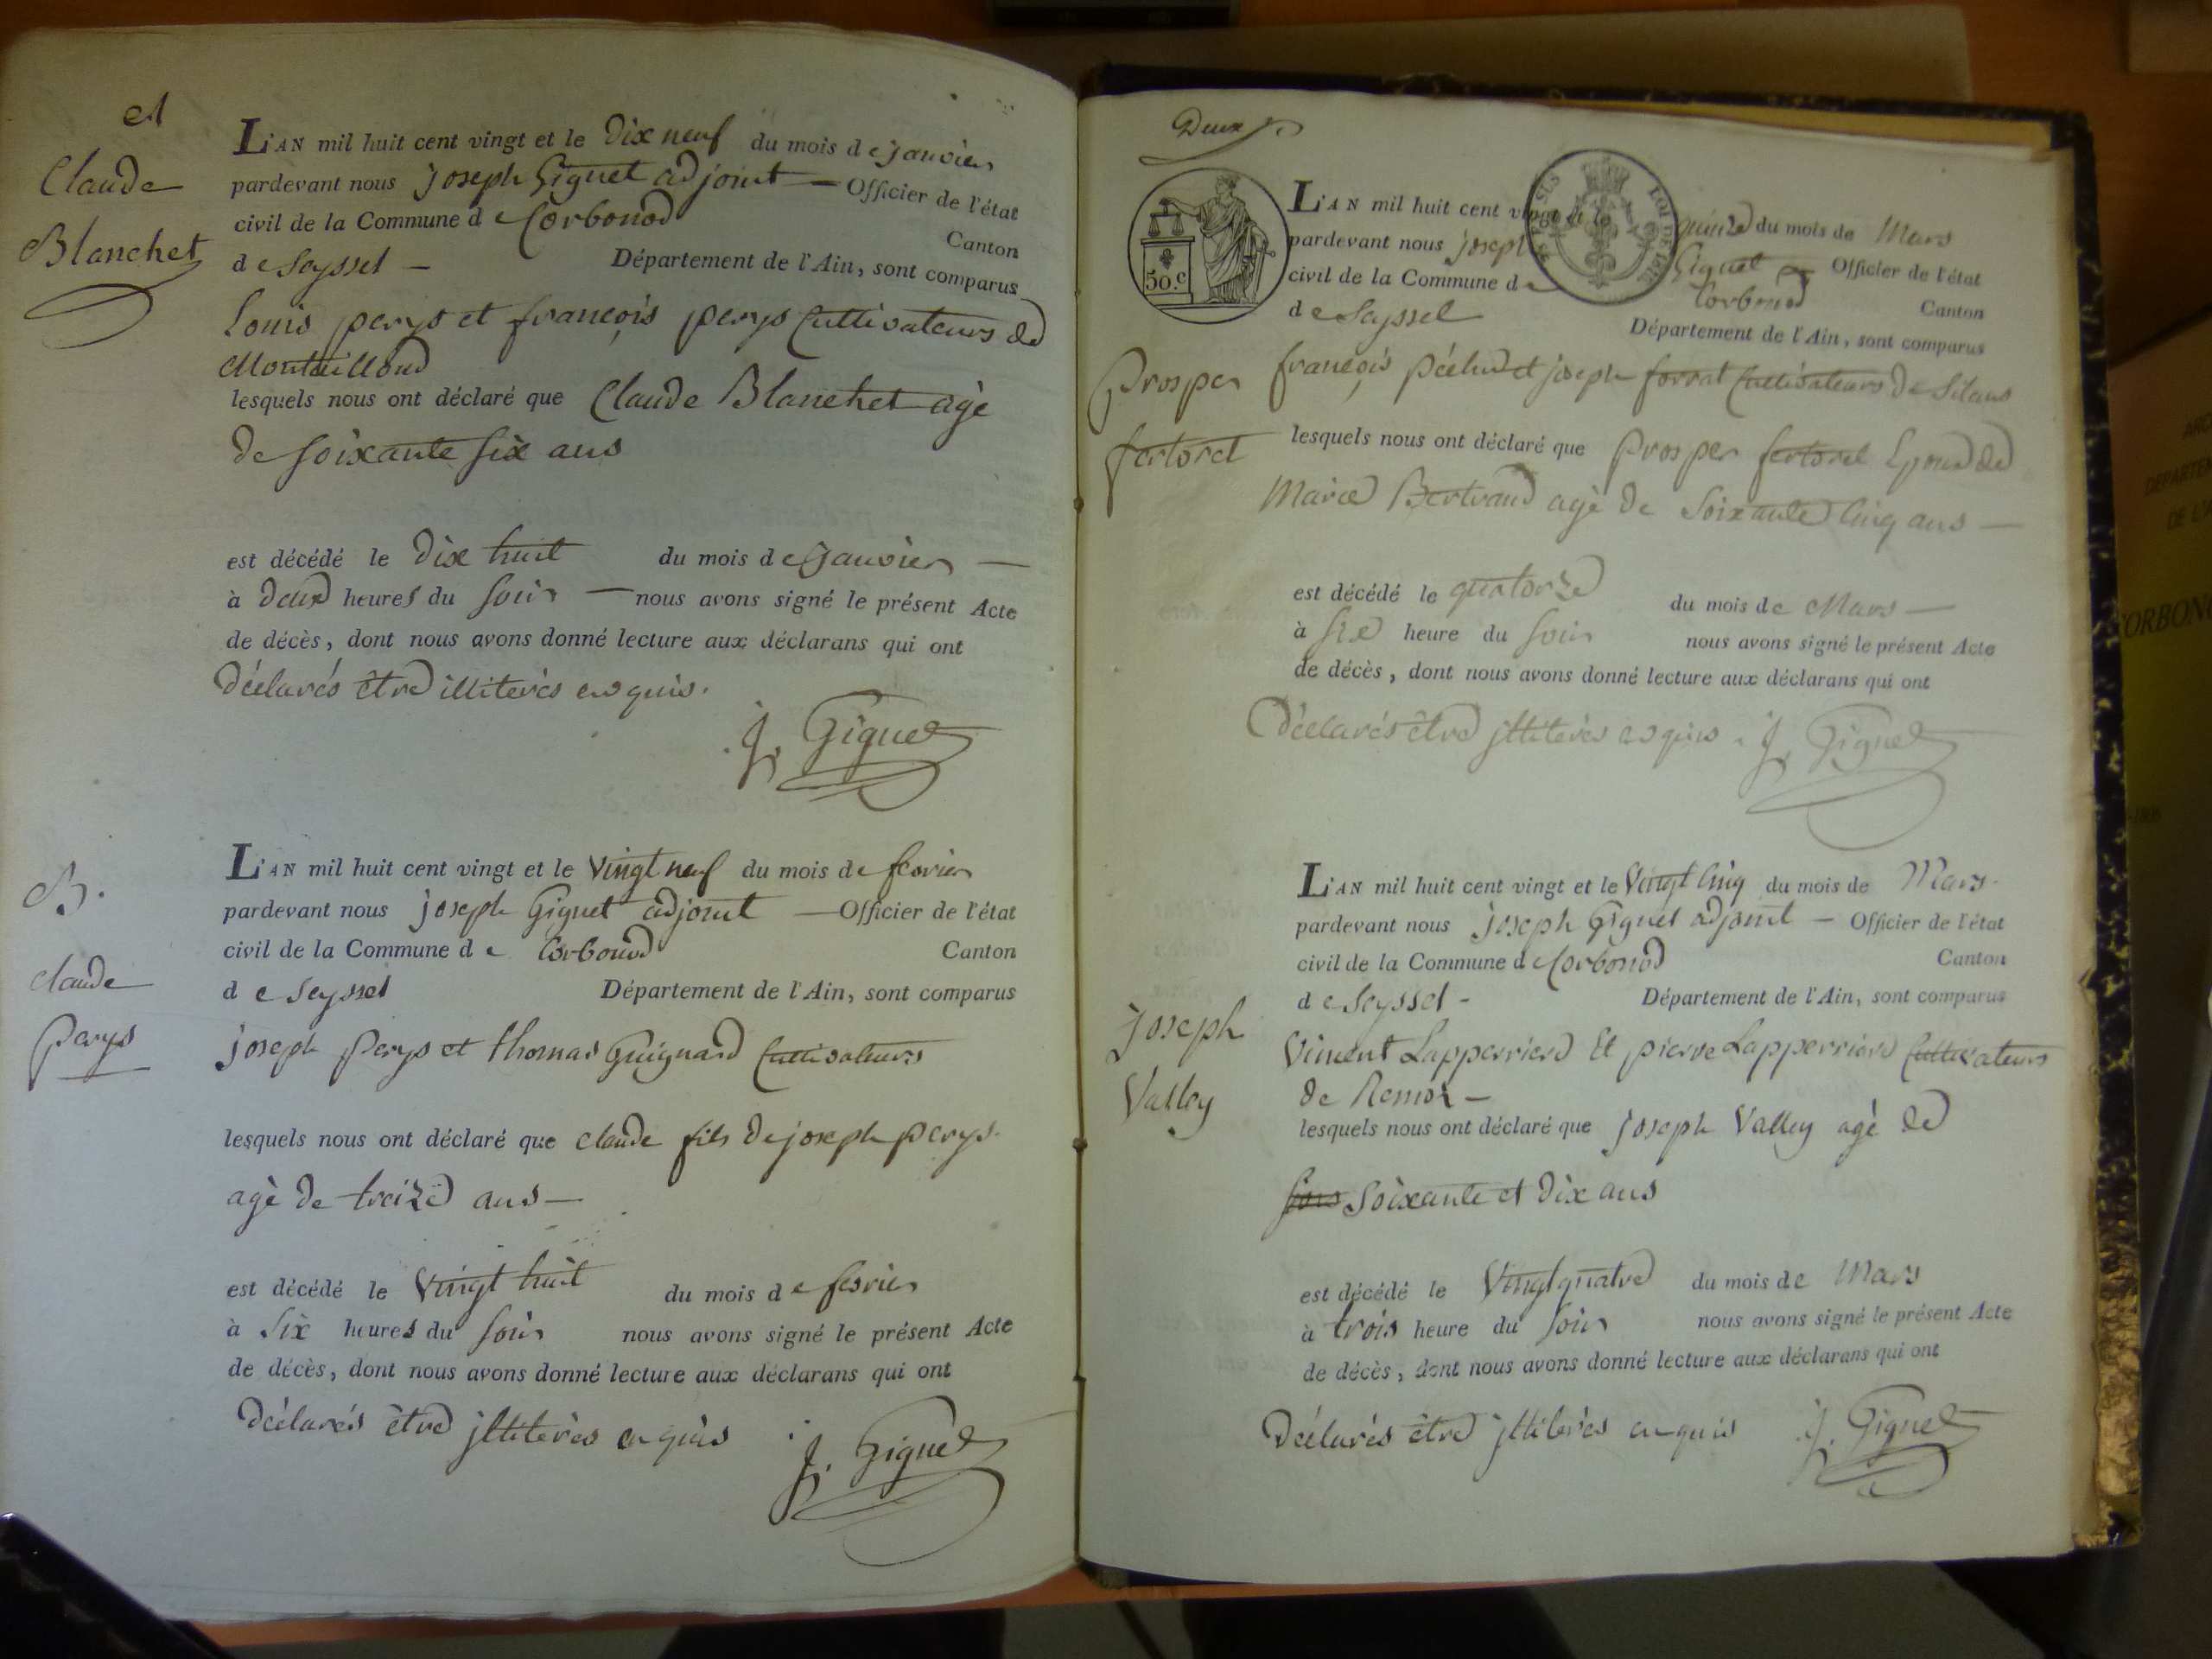 A
Claude
Blanchet
L'AN mil huit cent vingt et le Dix neuf du mois de janvier
pardevant nous joseph Giguet adjoint — Officier de l'état
civil de la Commune de Corbonod
Canton
de Seyssel — Département de l'Ain, sont comparus
Louis perys et françois perys Cultivateurs de
Montailloud
lesquels nous ont déclaré que Claude Blanchet agè
de soixante six ans
est décédé le Dix huit du mois de janvier —
à deux heures du soir — nous avons signé le présent Acte
de décès, dont nous avons donné lecture aux déclarans qui ont
Déclarés être illiterés enquis.
J. Giguet
B.
claude
perys
L'AN mil huit cent vingt et le vingt neuf du mois de fevrier
pardevant nous joseph Giguet adjoint — Officier de l'état
civil de la Commune de Corbonod Canton
de Seyssel Département de l'Ain, sont comparus
joseph perys et thomas Guignard Cultivateurs
lesquels nous ont déclaré que claude fils de joseph perys.
agè de treize ans —
est décédé le vingt huit du mois de fevrier
à six heures du soir nous avons signé le présent Acte
de décès, dont nous avons donné lecture aux déclarans qui ont
Déclarés être jlliterés enquis
J. Giguet
Deux
50.c
L'AN mil huit cent vingt et le quinze du mois de Mars
pardevant nous joseph Giguet Officier de l'état
civil de la Commune de Corbonod
Canton
de Seyssel Département de l'Ain, sont comparus
Prosper
fertoret
françois péclud et joseph forrat Cultivateurs de Silans
lesquels nous ont déclaré que prosper fertoret Epoux de
Marie Bertrand agè de soixante Cinq ans —
est décédé le quatorze du mois de Mars —
à six heure du soir nous avons signé le présent Acte
de décès, dont nous avons donné lecture aux déclarans qui ont
Déclarés être jlliterés enquis. J. Giguet
joseph
Valley
L'AN mil huit cent vingt et le Vingt Cinq du mois de Mars.
pardevant nous joseph Giguet adjoint — Officier de l'état
civil de la Commune de Corbonod Canton
de Seyssel - Département de l'Ain, sont comparus
Vincent Lapperriere Et pierre Lapperriere Cultivateurs
de Remoz —
lesquels nous ont déclaré que joseph Valley agè de
soixante et dix ans
est décédé le Vingt quatre du mois de Mars
à trois heure du soir nous avons signé le présent Acte
de décès, dont nous avons donné lecture aux déclarans qui ont
Déclarés être jlliterés enquis J. Giguet